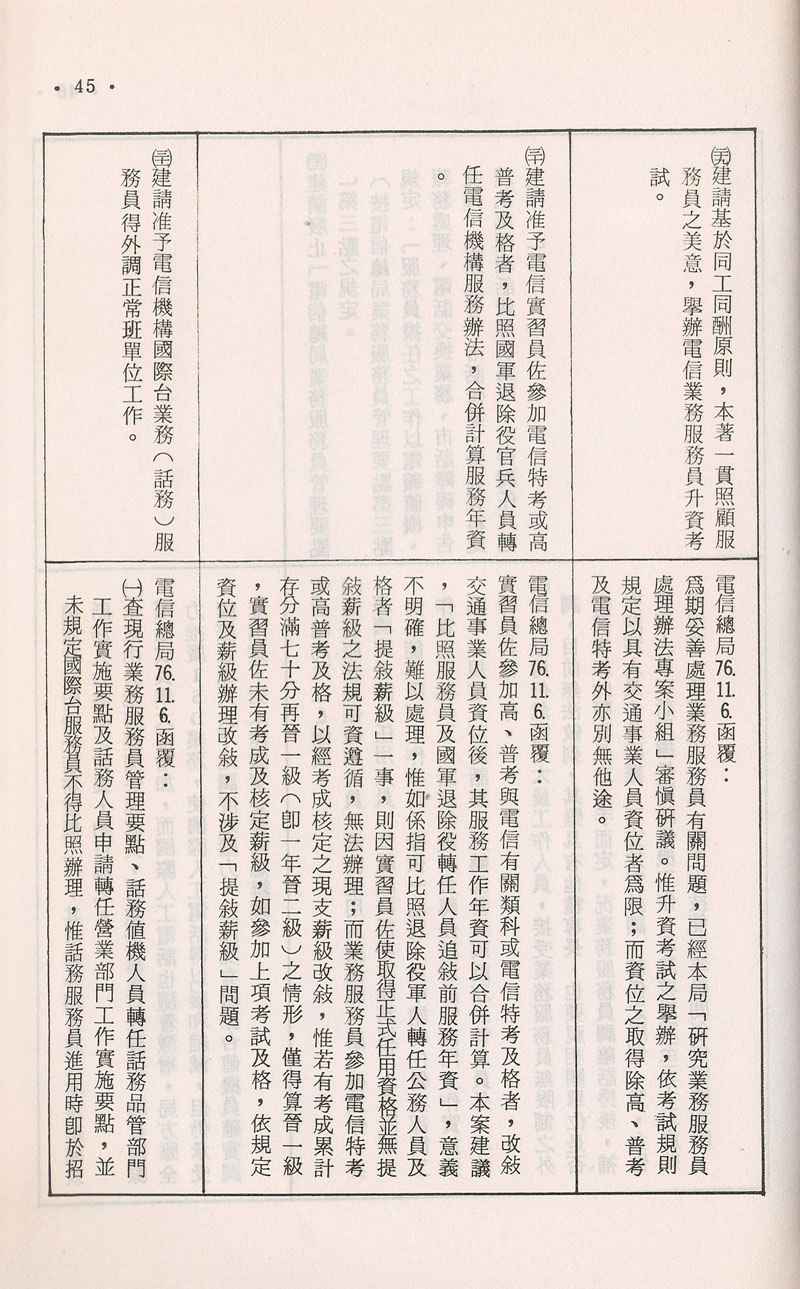 • 45 •
建請基於同工同酬原則，本著一貫照顧服
務員之美意，舉辦電信業務服務員升資考
試。
電信總局76.11.6.函覆：
爲期妥善處理業務服務員有關問題，已經本局「硏究業務服務員
處理辦法專案小組」審愼硏議。惟升資考試之舉辦，依考試規則
規定以具有交通事業人員資位者爲限；而資位之取得除高、普考
及電信特考外亦別無他途。
建請准予電信實習員佐參加電信特考或高
普考及格者，比照國軍退除役官兵人員轉
任電信機構服務辦法，合併計算服務年資
。
電信總局76.11.6.函覆：
實習員佐參加高、普考與電信有關類科或電信特考及格者，改敍
交通事業人員資位後，其服務工作年資可以合併計算。本案建議
，「比照服務員及國軍退除役轉任人員追敍前服務年資」，意義
不明確，難以處理，惟如係指可比照退除役軍人轉任公務人員及
格者「提敍薪級」一事，則因實習員佐使取得正式任用資格並無提
敍薪級之法規可資遵循，無法辦理；而業務服務員參加電信特考
或高普考及格，以經考成核定之現支薪級改敍，惟若有考成累計
存分滿七十分再晉一級（卽一年晉二級）之情形，僅得算晉一級
，實習員佐未有考成及核定薪級，如參加上項考試及格，依規定
資位及薪級辦理改敍，不涉及「提敍薪級」問題。
建請准予電信機構國際台業務（話務）服
務員得外調正常班單位工作。
電信總局76.11.6.函覆：
㈠查現行業務服務員管理要點、話務値機人員轉任話務品管部門
工作實施要點及話務人員申請轉任營業部門工作實施要點，並
未規定國際台服務員不得比照辦理，惟話務服務員進用時卽於招